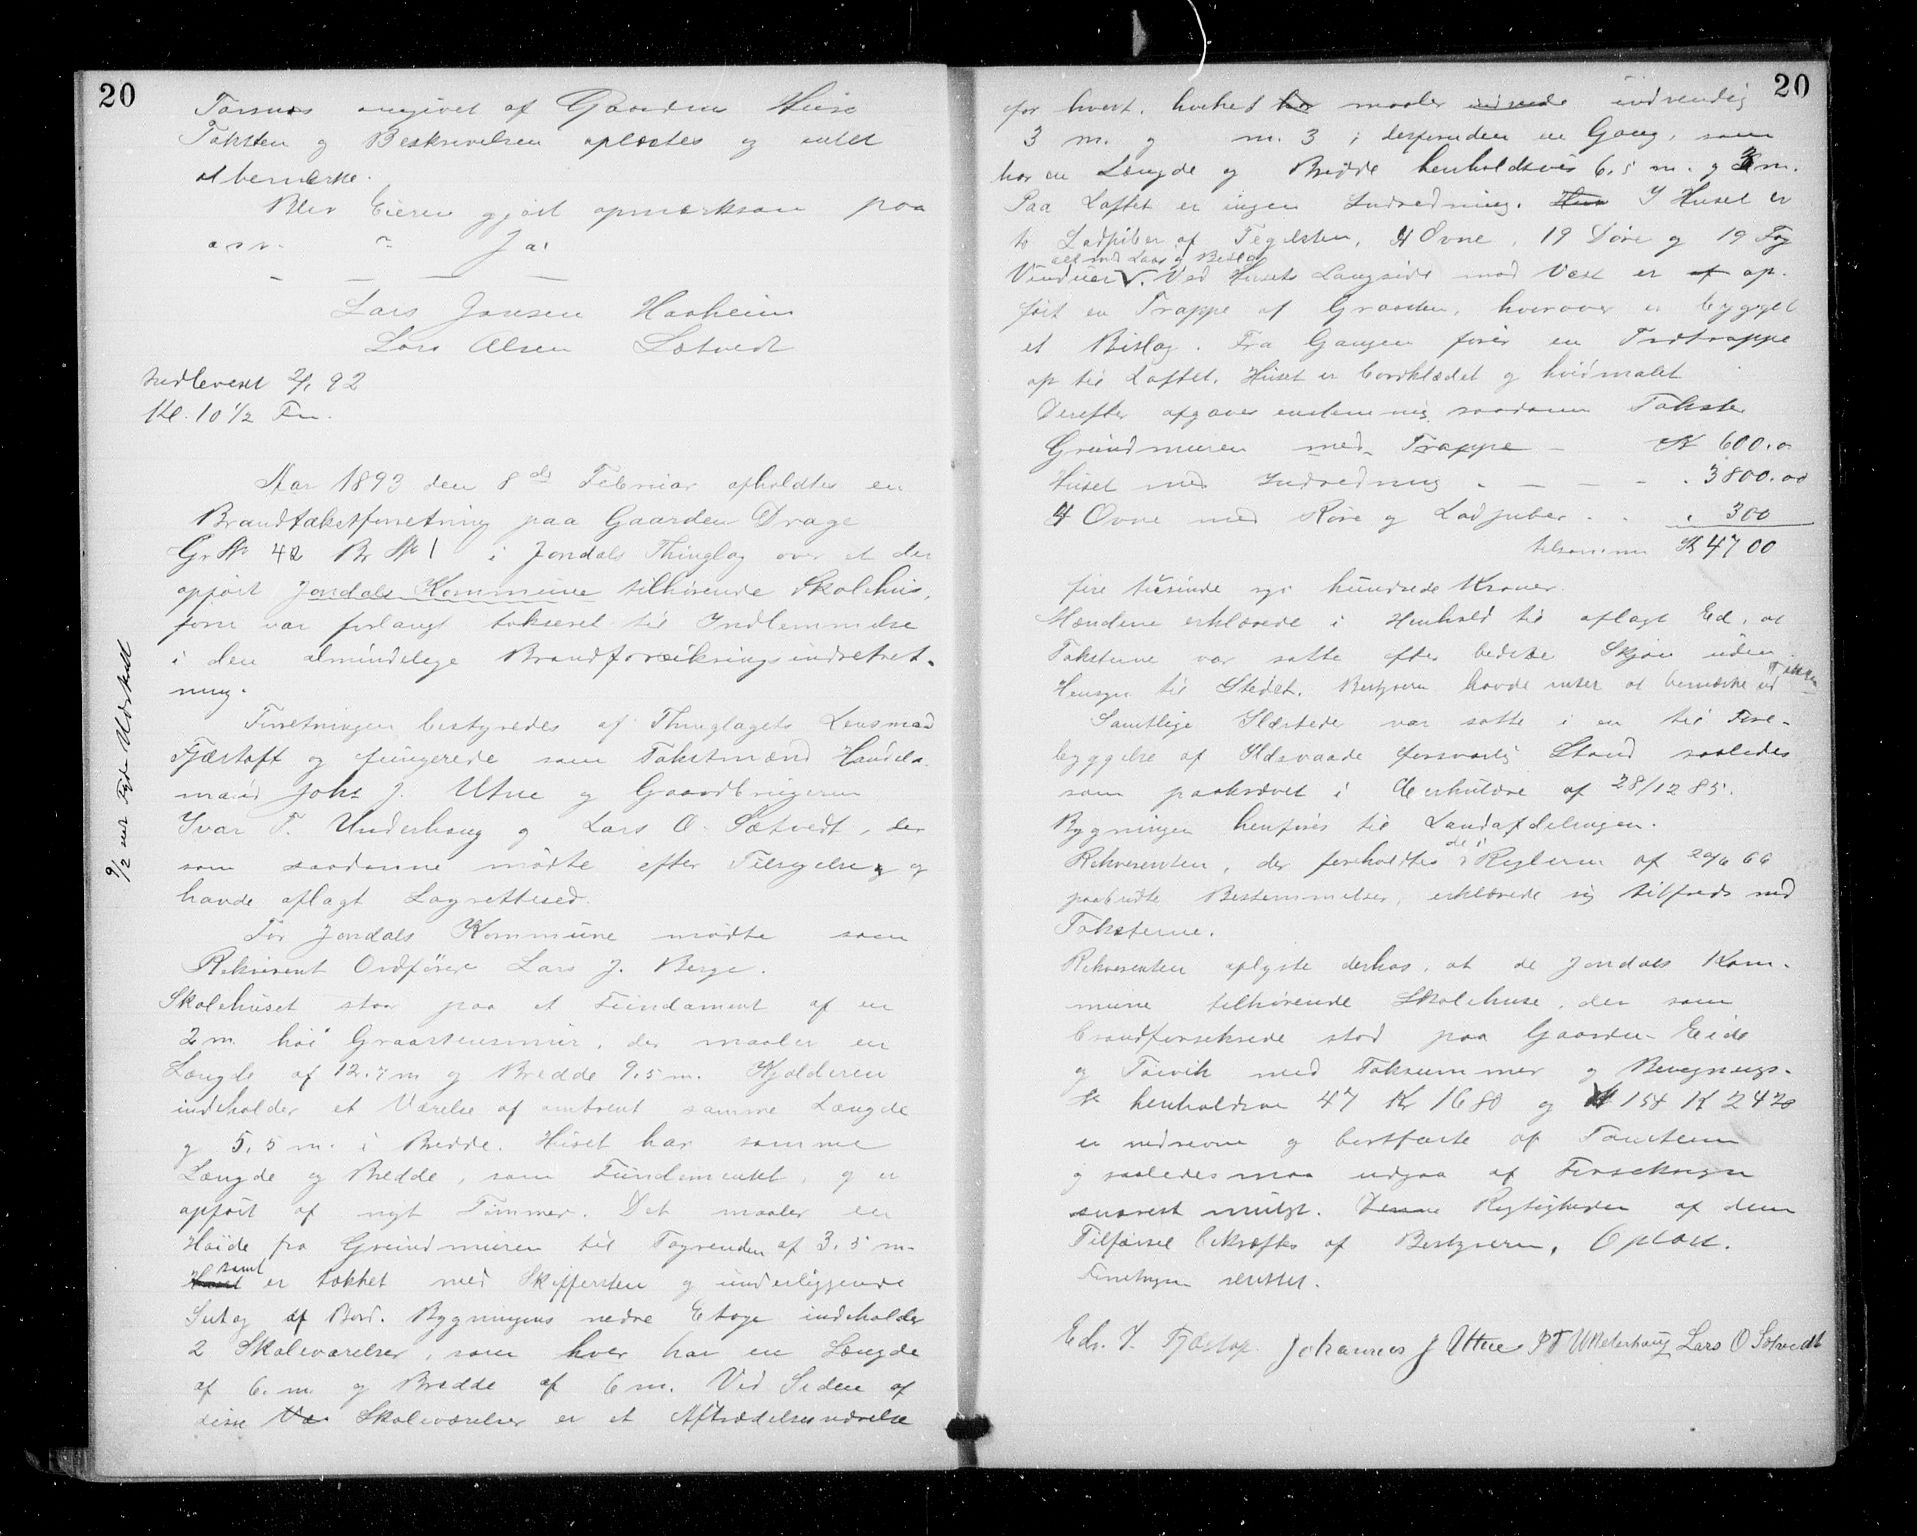 20
Torsnes angivet af Gaardens Huse
Taksten og Beskrivelsen oplæstes og intet
at bemerke.
Blev Eieren gjort opmærksom paa
osv. ~ Ja!
Lars Jansen Haaheim
Lars Olsen Sætvedt
Indleveret 2/1 92
Kl. 10 1/2 Fm.
Aar 1893 den 8de Februar afholdtes en
Brandtakstforretning paa Gaarden Drage
Gr № 42 Br № 1 i Jondals Thinglag over et der
opført Jondals Kommune tilhørende Skolehus,
som var forlangt takseret til Indlemmelse
i den almindelige Brandforsikringsindretret-
ning.
9/2 Udskrift
Forretningen bestyredes af Thinglagets Lensmand
Fjærtoft og fungerede som Takstmænd Handels-
mand Johs J. Utne og Gaardbrugerne
Ivar T. Underhaug og Lars O. Sætvedt, der
som saadanne mødte efter Tilsigelse og
havde aflagt Lagrettesed.
For Jondals Kommune mødte som
Rekvirent Ordfører Lars J. Berge.
Skolehuset staar paa et Fundament af en
2 m. høi Graastensmur, der maaler en
Længde af 12.7 m og Bredde 9.5 m. Kjælderen
indeholder et Værelse af omtrent samme Længde
og 5,5 m. i Bredde. Huset har samme
Længde og Bredde, som Fundamentet, og er
opført af nyt Tømmer. Det maaler en
Høide fra Grundmuren til Tagrenden af 3.5 m.
samt
Huset er tækket med Skiffersten og underliggende
Sutag af Bord. Bygningens nedre Etage indeholder
2 Skoleværelser, som hver har en Længde
af 6. m. og Bredde af 6 m. Ved Siden af
disse Væ Skoleværelser er et Aftrædelsesværelse
20
for hvert, hvilket har maaler indvendig
3 m. og m. 3; desforuden en Gang, som
har en Længde og Bredde henholdsvis 6.5 m. og 3 m.
Paa Loftet er ingen Indredning. Hus I Huset er
to Ladpiber af Tegelsten, 4 Ovne, 19 Døre og 19 Fag
alt med Laas og Beslag
Vinduer. Ved Husets Langside mod Vest er af op-
ført en Trappe af Graasten, hvorover er bygget
et Bislag. Fra Gangen fører en Trætrappe
op til Loftet. Huset er bordklædet og hvidmalet
Derefter afgaves enstemmig saadanne Takster
Grundmuren med Trappe - Kr 600.0
Huset med Indredning - - - - 3800.00
4 Ovne med Røre og Ladpiber . . 300
tilsammen Kr 4700
fire tusinde syv hundrede Kroner.
Mændene erklærede i Henhold til aflagt Ed, at
Taksterne var satte efter bedste Skjøn uden
Hensyn til Stedet. Bestyreren havde intet at bemærke ved Taksten
Samtlige Ildsteder var satte i en til Fore-
byggelse af Ildsvaade forsvarlig Stand saaledes
som paakrævet i Cirkulære af 28/12 85.
Bygningen henføres til Landafdelingen.
Rekvirenten, der foreholdtes de i Reglerne af 20/6 66
paabudte Bestemmelser, erklærede sig tilfreds med
Taksterne.
Rekvirenten oplyste derhos, at de Jondals Kom-
mune tilhørende Skolehuse, der som
brandforsikrede stod paa Gaarden Eide
og Torvik med Taksummer og Bevegnings-
№ henholdsvis 47 Kr 1680 og № 154 K 2420
er nedrevne og bortførte af Tomterne
og saaledes maa udgaa af Forsikringen
snarest muligt. Denne Rigtigheden af denne
Tilførsel bekræftes af Bestyreren. Oplæst.
Forretningen sluttet.
Edv. I. Fjærtoft. Johannes J Utne I T Underhaug Lars O Sætvedt